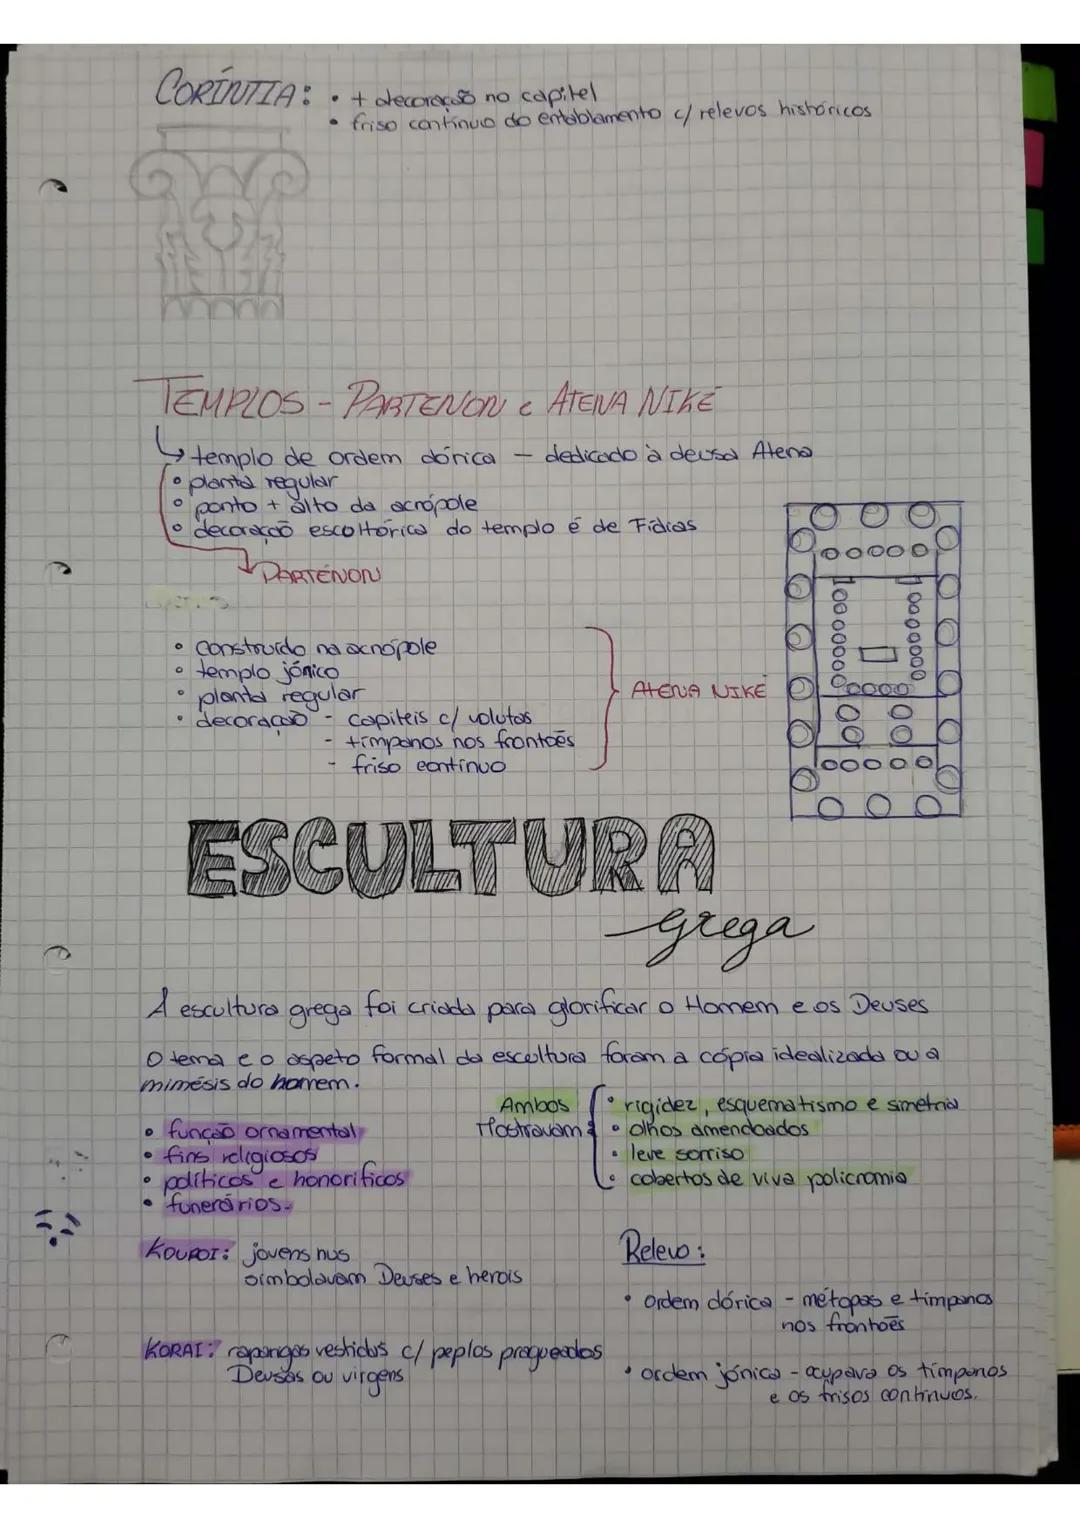 CORÍNTIA: • + decoração no capitel
• friso contínuo do entablamento c/ relevos históricos
TEMPLOS - PARTENON e ATENA NIKÉ
↳ templo de ordem dórica - dedicado à deusa Atena
• planta regular
• ponto + alto da acrópole
• decoração escoltórica do templo é de Fídias
↳ PARTÉNON
• construído na acrópole
• templo jónico
• planta regular
• decoração - capiteis c/ volutas
- tímpanos nos frontões
- friso contínuo
ATENA NIKÉ
ESCULTURA
grega
A escultura grega foi criada para glorificar o Homem e os Deuses
O tema e o aspeto formal da escultura foram a cópia idealizada ou a
mimésis do homem.
• função ornamental
• fins religiosos
• políticos e honoríficos
• funerários.
Ambos
Mostravam:
• rigidez, esquematismo e simetria
• olhos amendoados
• leve sorriso
• cobertos de viva policromia
KOUROI: jovens nus
simbolavam Deuses e herois
KORAI: raparigas vestidas c/ peplos pragueados
Deusas ou virgens
Relevo:
• ordem dórica - métopas e tímpanos
nos frontões
• ordem jónica - ocupava os tímpanos
e os frisos contínuos.